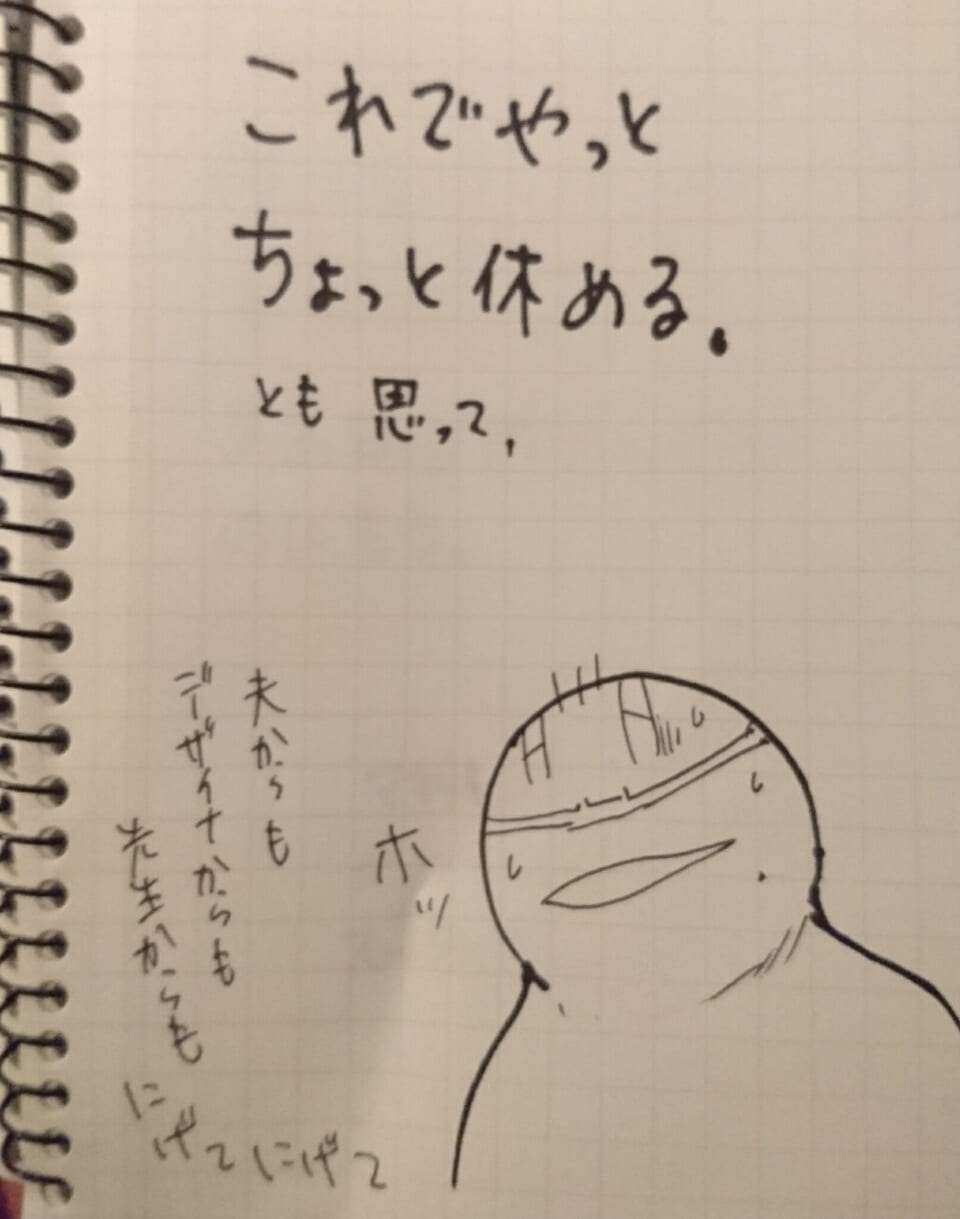 これでやっと
ちょっと休める.
とも思って,
ホッ
夫からも
デザイナからも
先生からも
にげてにげて